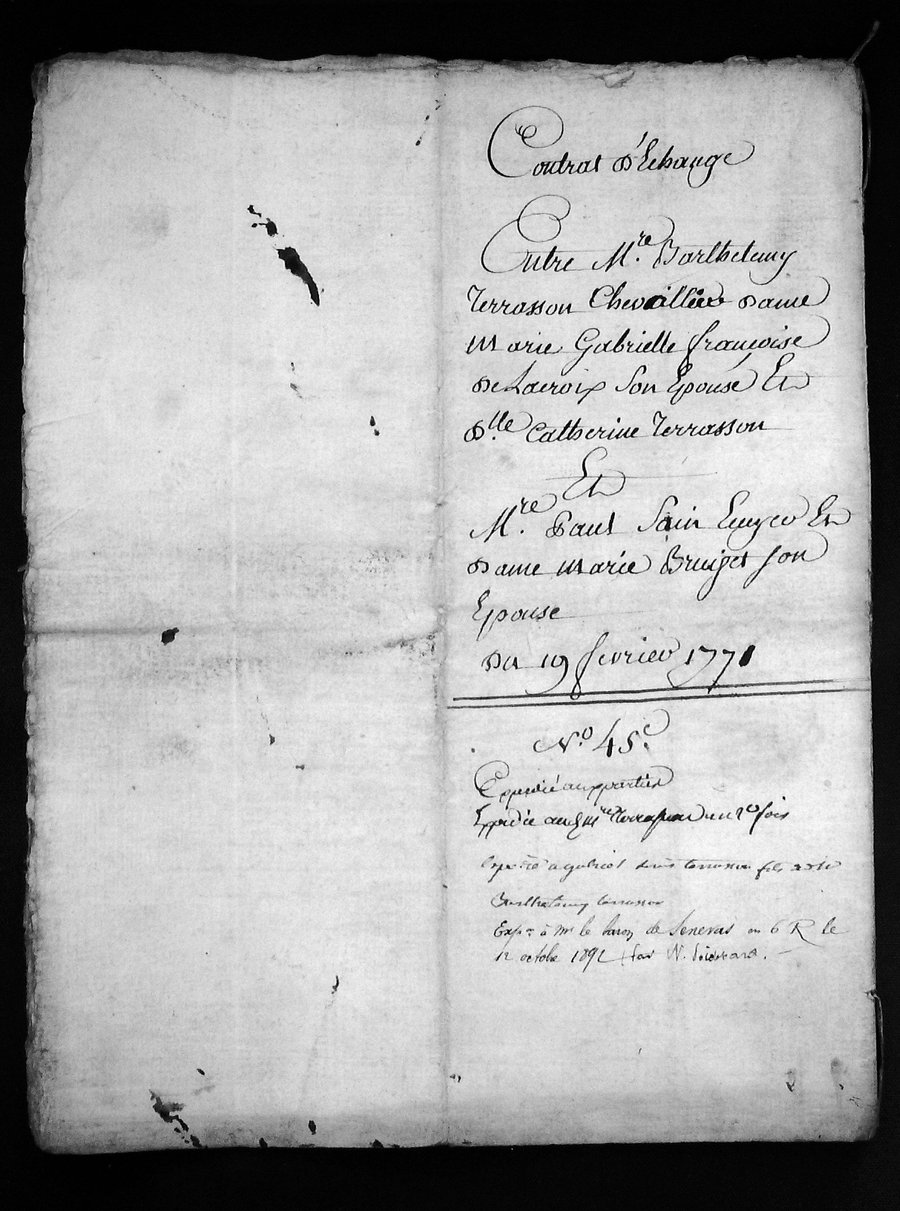 Contrat d'Echange
Entre Mre Barthelemy
Terrasson Chevallier Dame
Marie Gabrielle françoise
De Lacroix Son Epouse Et
Dlle Catherine Terrasson
Et
Mre Paul Sain Et
Dame Marie Bruyet son
Epouse
Du 19 fevrier 1771
No 45e
Expedié aux parties
Expedié aud Mre Terrasson une 2e fois
Expedié a gabriel terrasson fils de
Barthelemy terrasson
Expn à Mr le baron de Senevas en 6 R le
12 octobre 1891 par N.